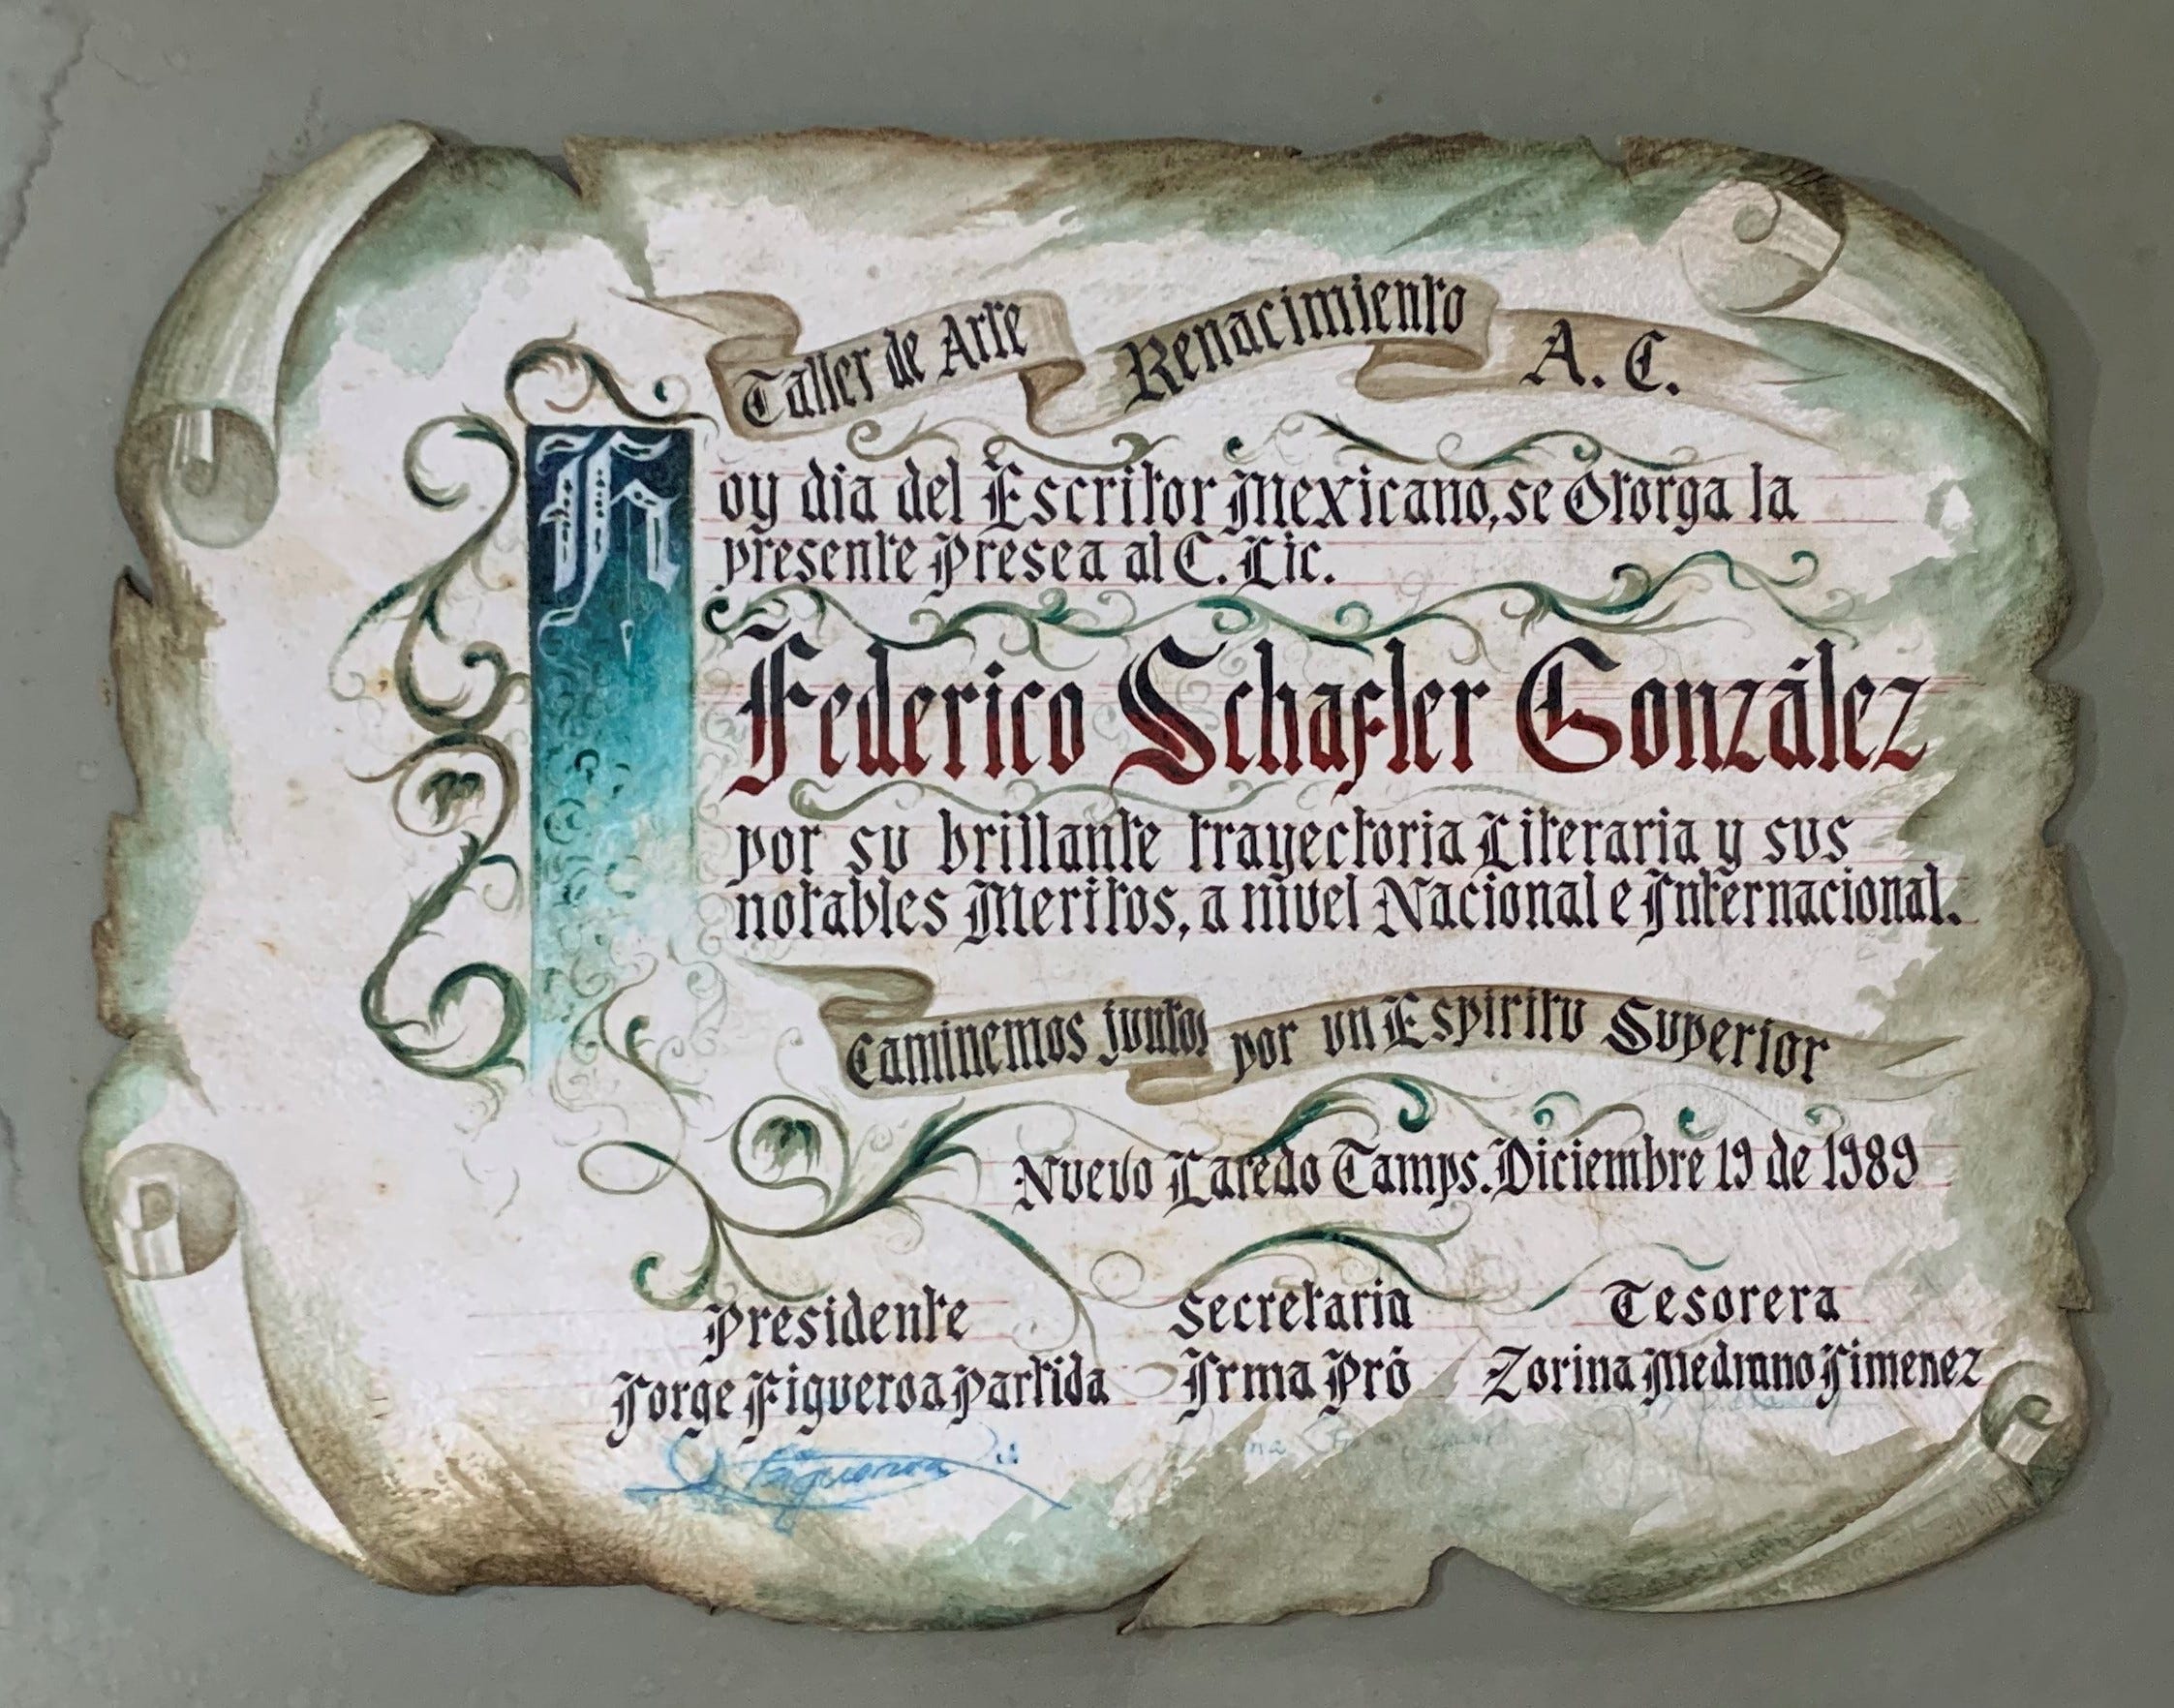 Taller de Arte Renacimiento A. C.
Hoy dia del Escritor Mexicano, se Otorga la
presente Presea al C. Lic.
Federico Schafler González
por su brillante trayectoria Literaria y sus
notables Meritos, a nivel Nacional e Internacional.
Caminemos juntos por un Espiritu Superior
Nuevo Laredo Tamps. Diciembre 19 de 1989
Presidente Secretaria Tesorera
Jorge Figueroa Partida Irma Pró Zorina Medrano Jimenez
Figueroa